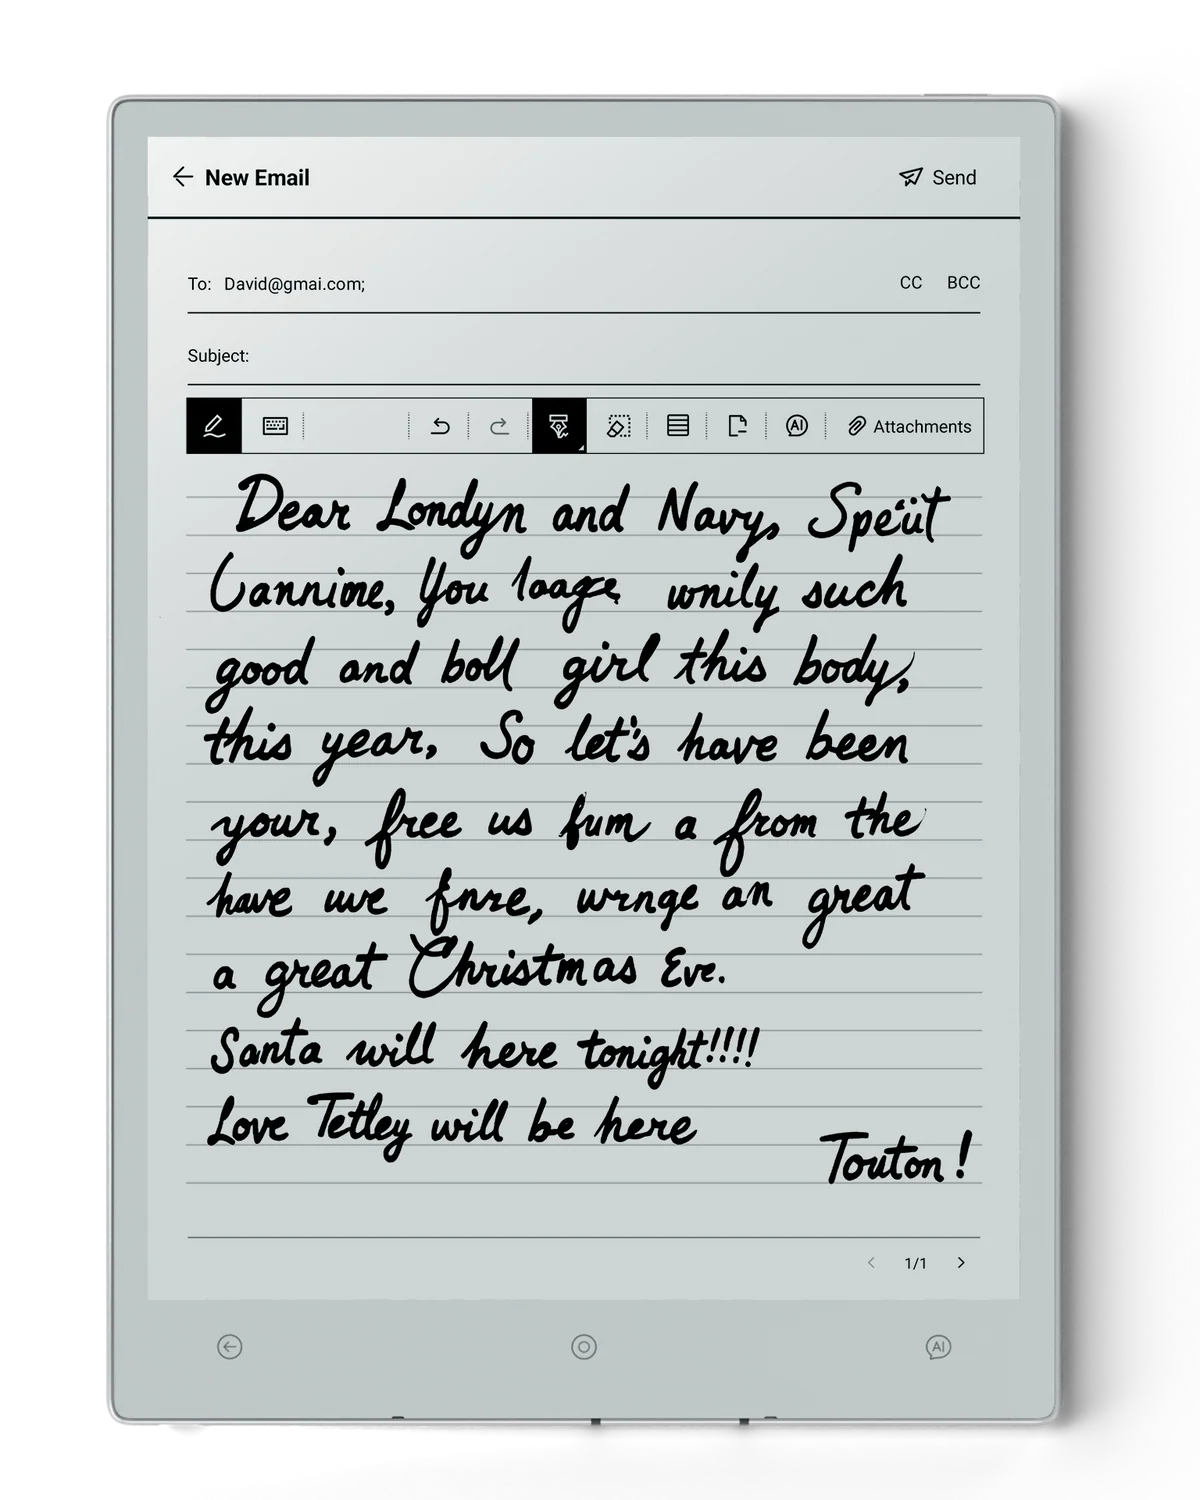 New Email Send
To: David@gmai.com; CC BCC
Subject:
AI Attachments
Dear Londyn and Navy, Speüt
Cannime, You loage wnily such
good and boll girl this body,
this year, So let's have been
your, free us fum a from the
have uve fnre, wrnge an great
a great Christmas Eve.
Santa will here tonight!!!!
Love Tetley will be here
Touton!
1/1
AI